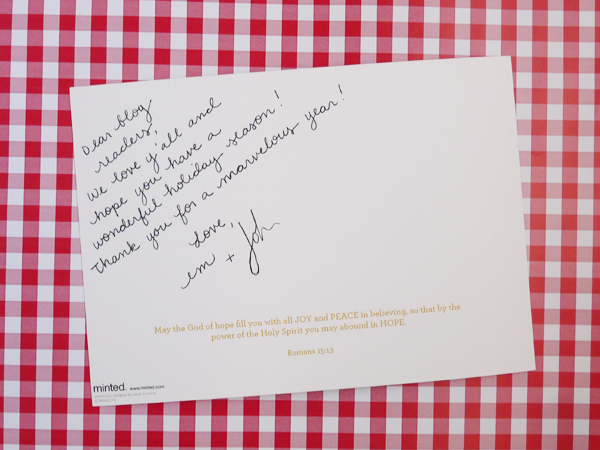 Dear blog
readers,
We love y'all and
hope you have a
wonderful holiday season!
Thank you for a marvelous year!
Love,
em + Joh
May the God of hope fill you with all JOY and PEACE in believing, so that by the
power of the Holy Spirit you may abound in HOPE.
Romans 15:13
minted. www.minted.com